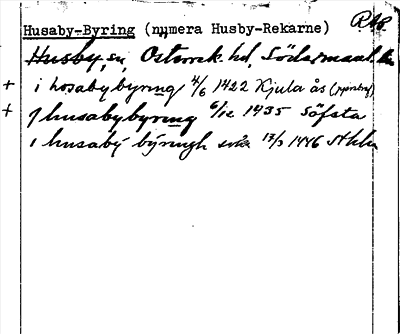 Husaby-Byring (numera Husby-Rekarne) RA8
Husby, sn, Österrek. hd, Södermanl. län
+ i hosabybyring 4/6 1422 Kjula ås
+ J husabybyring 6/12 1435 Söfsta
i husabÿ bÿringh 17/3 1446 Sthlm